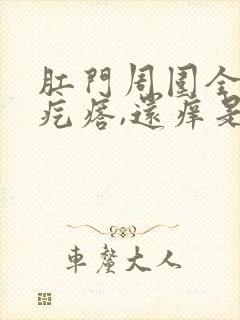 肛門周圍全
疙瘩,還痒是
車螯大人